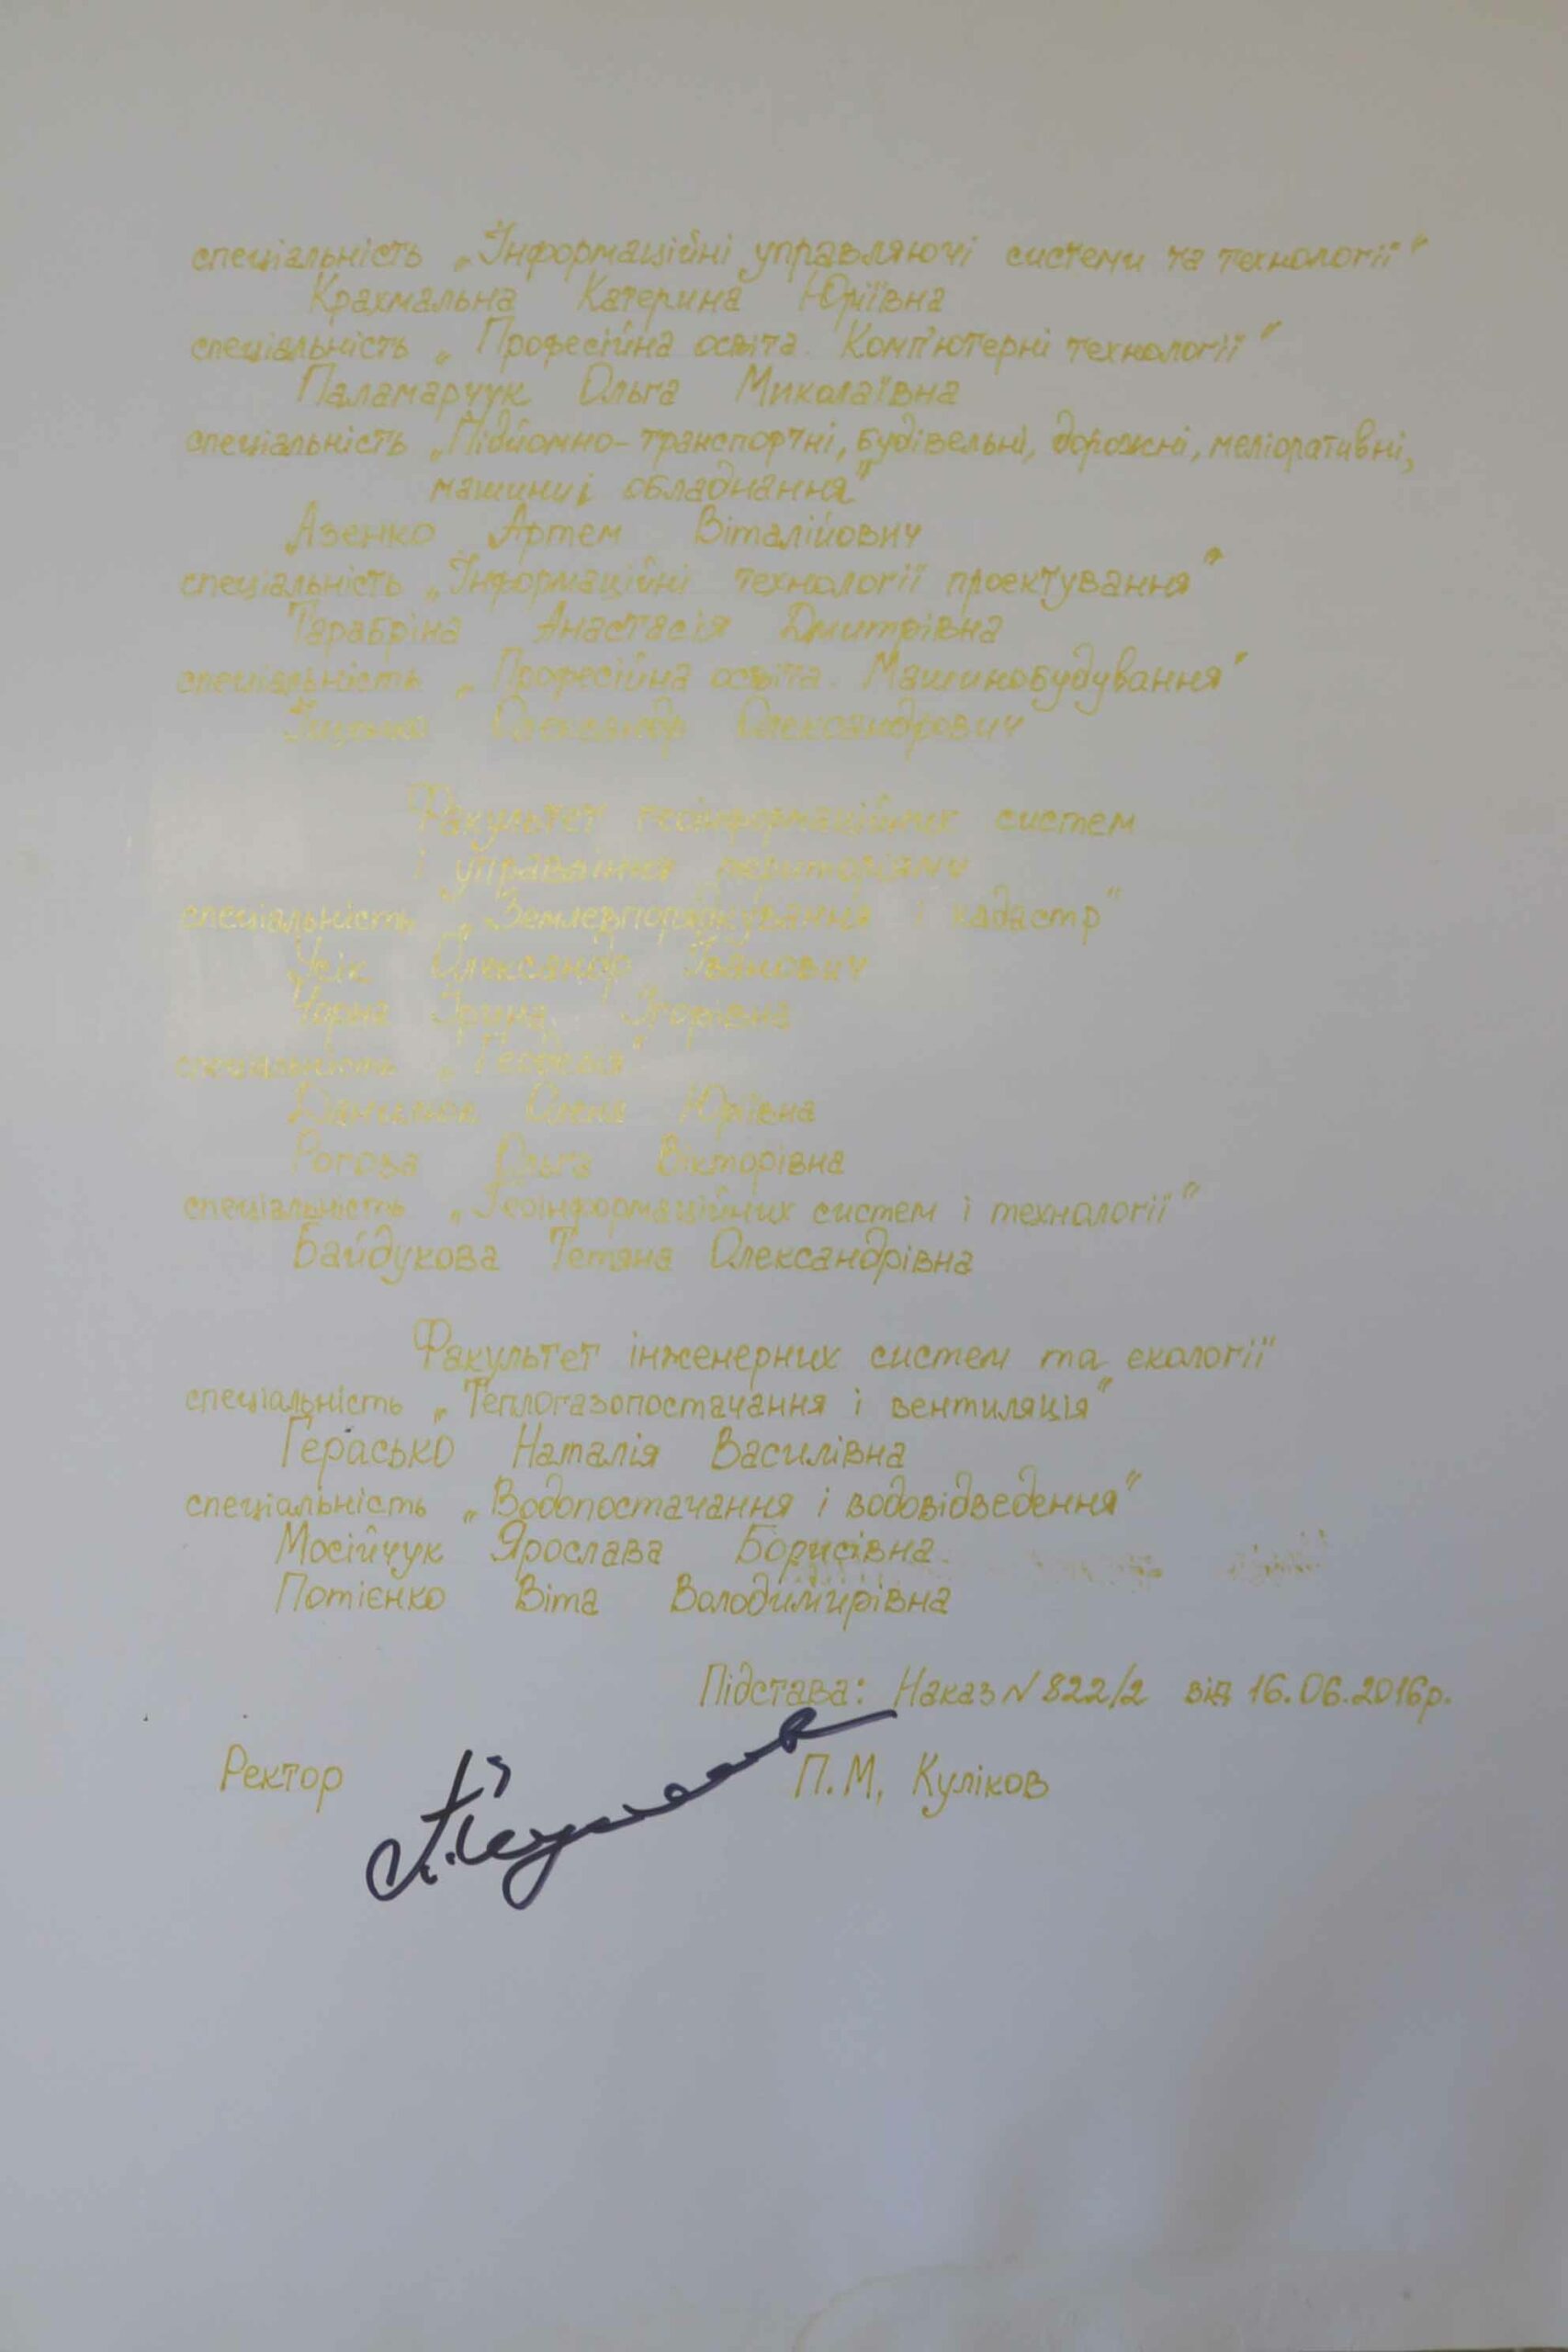 спеціальність „Інформаційні управляючі системи та технології"
Крахмальна Катерина Юріївна
спеціальність „Професійна освіта. Комп'ютерні технології"
Паламарчук Ольга Миколаївна
спеціальність „Підйомно-транспортні, будівельні, дорожні, меліоративні,
машини і обладнання"
Азенко Артем Віталійович
спеціальність „Інформаційні технології проектування"
Тарабріна Анастасія Дмитрівна
спеціальність „Професійна освіта. Машинобудування"
Олександр Олександрович
Факультет геоінформаційних систем
і управління територіями
спеціальність „Землевпорядкування і кадастр"
Усік Олександр Іванович
Чорна Ірина Ігорівна
спеціальність „Геодезія"
Данилюк Олена Юріївна
Рогова Ольга Вікторівна
спеціальність „Геоінформаційних систем і технології"
Байдукова Тетяна Олександрівна
Факультет інженерних систем та екології"
спеціальність „Теплогазопостачання і вентиляція"
Герасько Наталія Василівна
спеціальність „Водопостачання і водовідведення"
Мосійчук Ярослава Борисівна
Потієнко Віта Володимирівна
Підстава: Наказ № 822/2 від 16.06.2016р.
Ректор П.М. Куліков